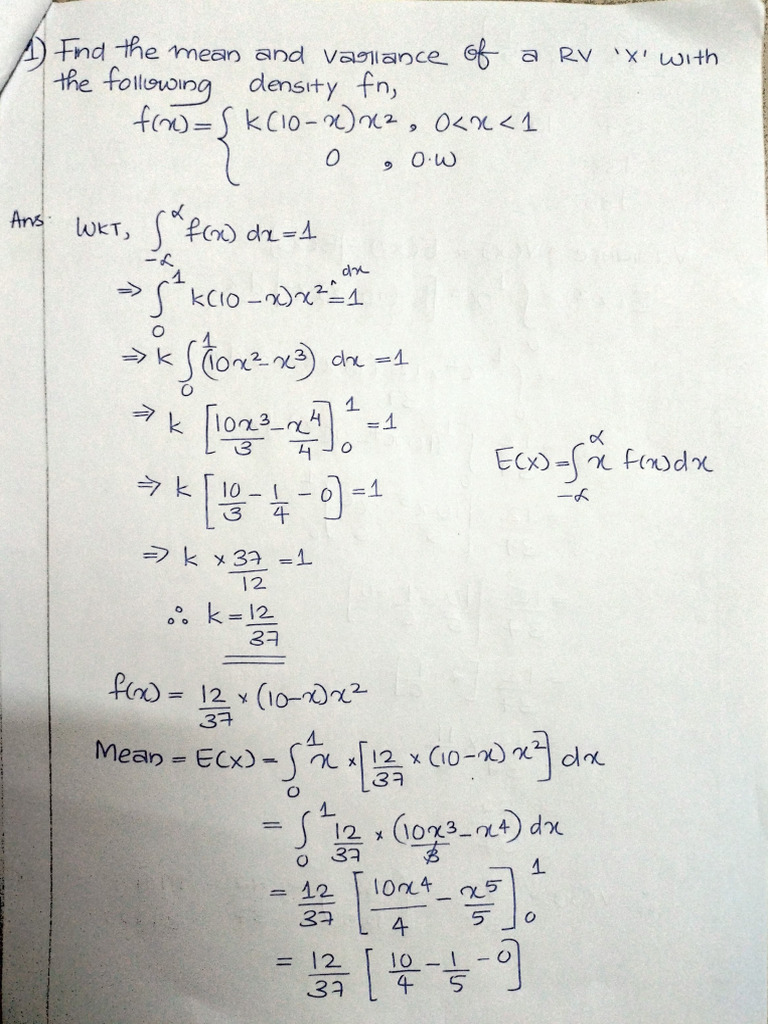 1) Find the mean and variance of a RV 'X' with
the following density fn,
f(x) = { k(10-x)x², 0<x<1
0 , 0.W
Ans: WKT, ∫_{-∝}^{∝} f(x) dx = 1
⇒ ∫_0^1 k(10-x)x² ^dx = 1
⇒ k ∫_0^1 (10x² - x³) dx = 1
⇒ k [10x³/3 - x⁴/4]_0^1 = 1
E(X) = ∫_{-∝}^{∝} x f(x) dx
⇒ k [10/3 - 1/4 - 0] = 1
⇒ k × 37/12 = 1
∴ k = 12/37
f(x) = 12/37 × (10-x)x²
Mean = E(X) = ∫_0^1 x × [12/37 × (10-x) x²] dx
= ∫_0^1 12/37 × (10x³ - x⁴) dx
= 12/37 [10x⁴/4 - x⁵/5]_0^1
= 12/37 [10/4 - 1/5 - 0]